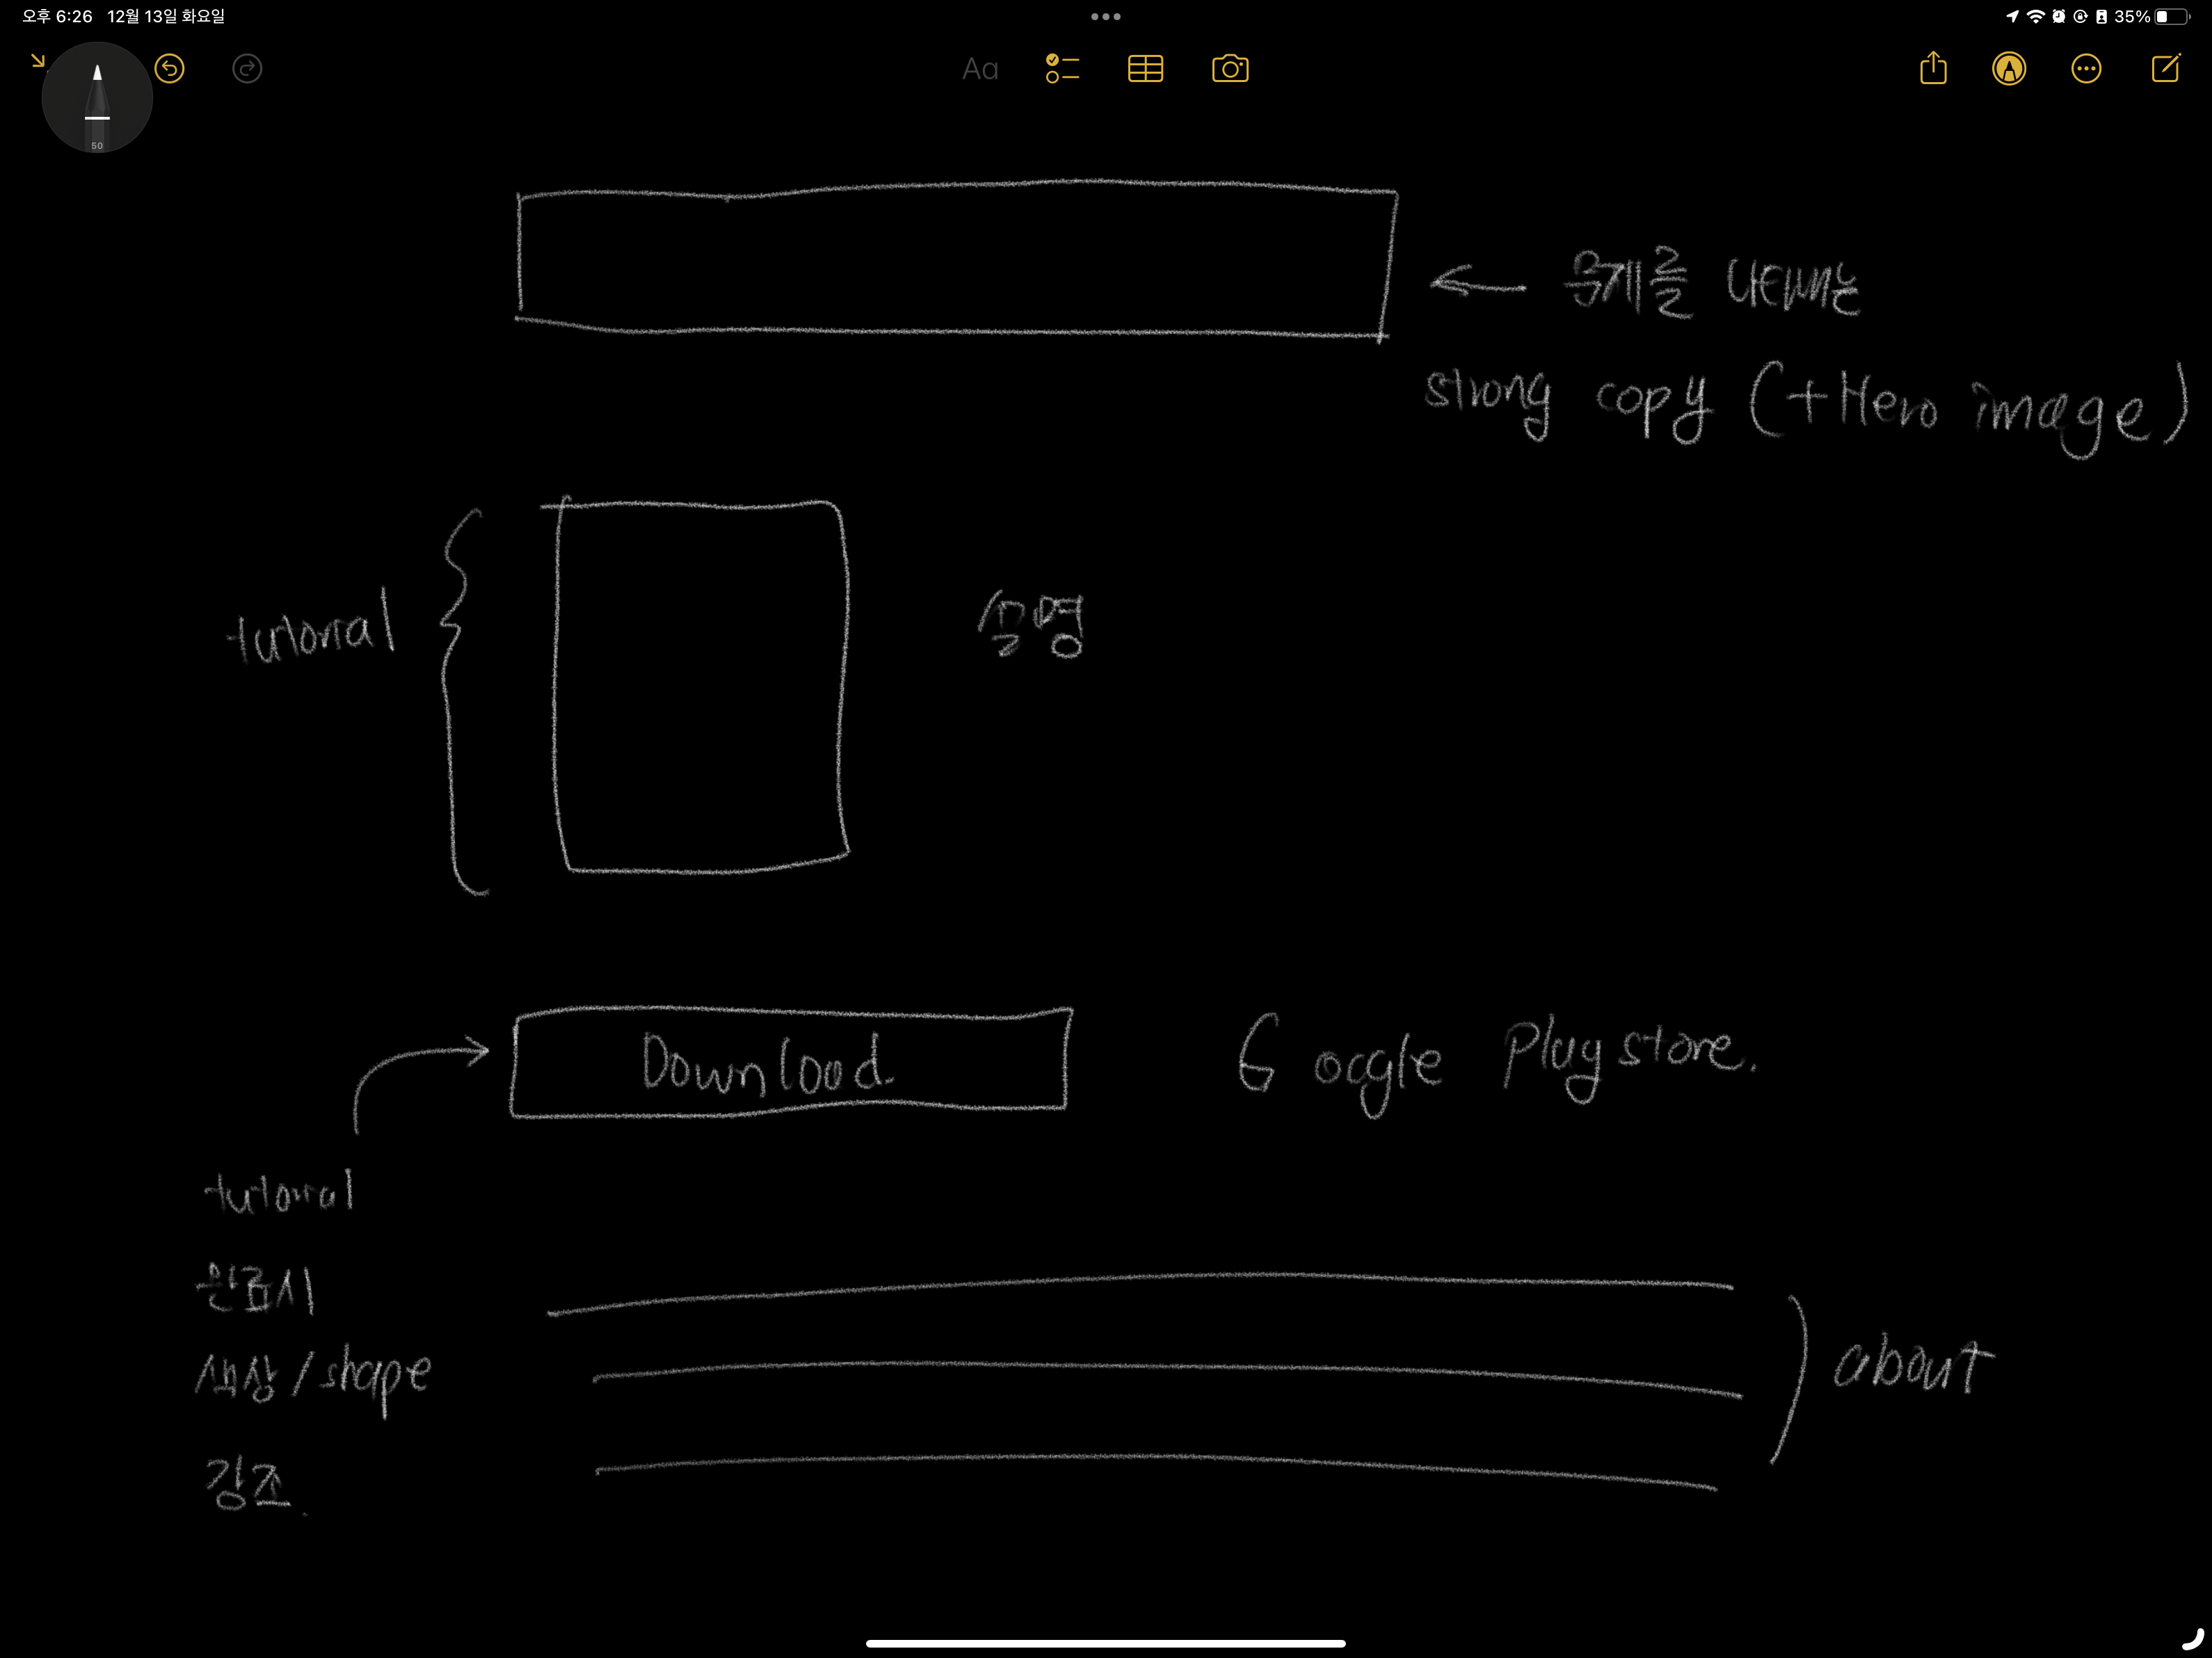 오후 6:26 12월 13일 화요일
35%
Aa
50
무게를 나타내는
strong copy (+Hero image)
tutorial
설명
Download.
Google Play store.
tutorial
완료시
색상/shape
강조.
about